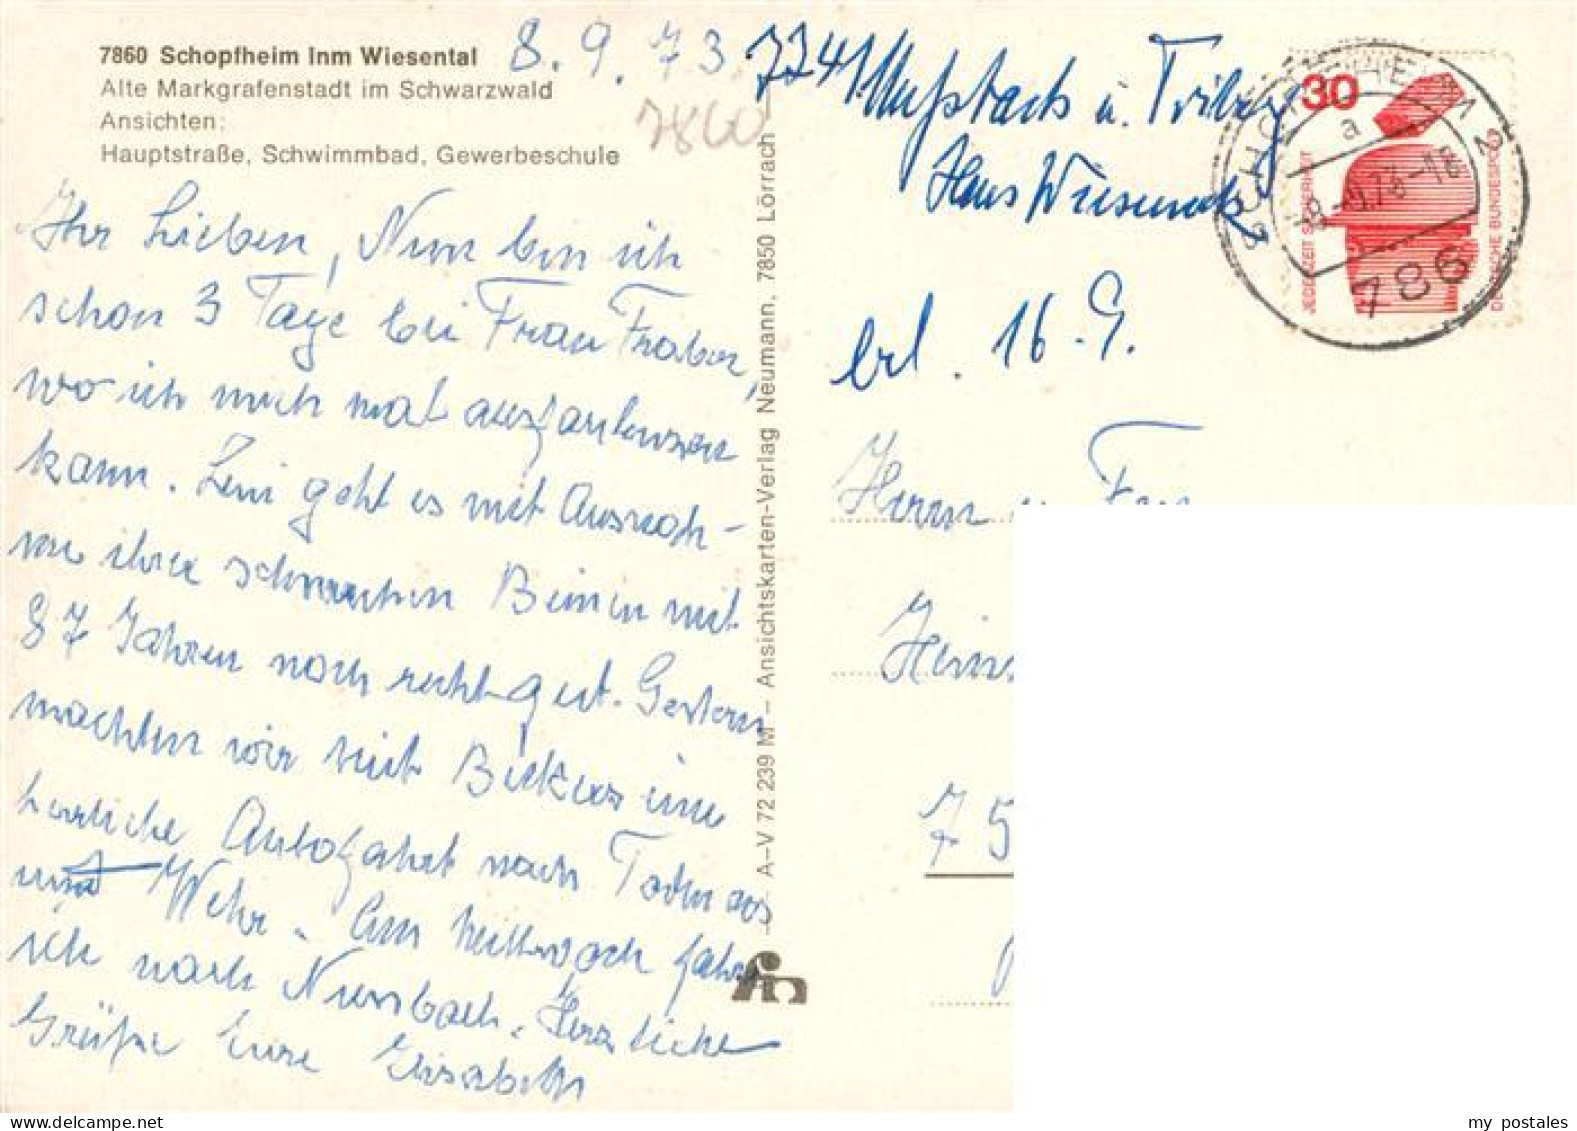 7860 Schopfheim Inm Wiesental
Alte Markgrafenstadt im Schwarzwald
Ansichten:
Hauptstraße, Schwimmbad, Gewerbeschule
8.9.73
7860
Ihr Lieben, Nun bin ich
schon 3 Tage bei Frau
wo ich mich mal
kann. geht es mit Ausnah-
me ihrer schwachen Beinen mit
87 Jahren noch recht gut. Gestern
machten wir mit Beckers eine
herrliche Autofahrt nach Todmoos
und Wehr. Am Mittwoch fahre
ich nach Nussbach. Herzliche
Grüße Eure Elisabeth
A-V 72 239 M - Ansichtskarten-Verlag Neumann, 7850 Lörrach
7741 Nußbach ü. Triberg
Haus
erl. 16.9.
Herrn u. Frau
75
30
JEDERZEIT SICHERHEIT
DEUTSCHE BUNDESPOST
SCHOPFHEIM 2
a
-8.-9.73-18
786
my postales